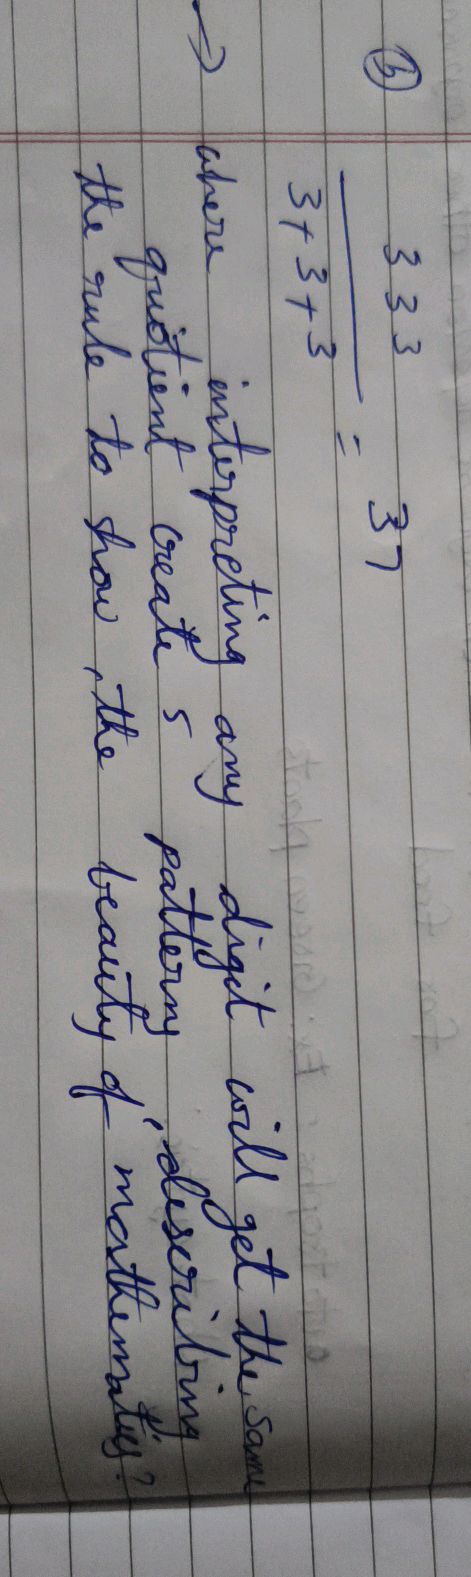 b 333
3+3+3 = 37
→ where interpreting any digit will get the same
quotient create 5 patterns, describing
the rule to show, the beauty of mathematics?